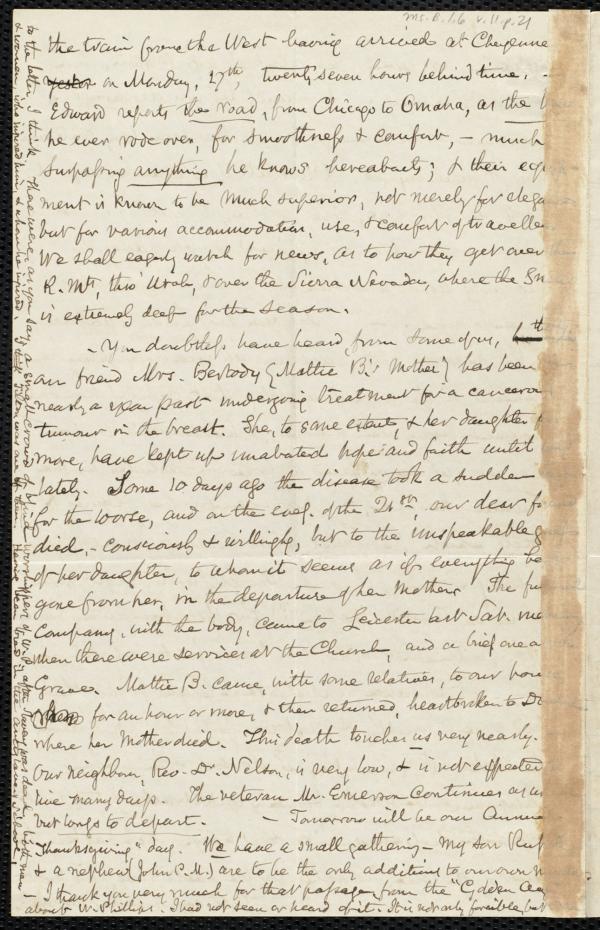 Ms. B. 1.6 v. 11. p. 21
the train from the West having arrived at Cheyenne
on Monday, 17th, twenty seven hours behind time. -
Edward reports the road, from Chicago to Omaha, as the
he ever rode over, for smoothness & comfort, - much
surpassing anything he knows hereabouts; & their
ment is known to be much superior, not merely for
but for various accommodation, use, & comfort of
We shall eagerly watch for news, as to how they get over
R. Mts, thro' Utah, & over the Sierra Nevadas, where the
is extremely deep for the season.
- You doubtless have heard, from some of us,
our friend Mrs. Bertody (Mattie B's Mother) has been
nearly a year past undergoing treatment for a
tumour in the breast. She, to some extent, & her daughter
more, have kept up unabated hope and faith until
lately. Some 10 days ago the disease took a sudden
for the worse, and on the evg. of the 21st, our dear
died, - consciously & willingly, but to the unspeakable
of her daughter, to whom it seems as if everything
gone from her, in the departure of her Mother. The
company, with the body, came to Leicester last Sat.
when there were services at the Church, and a brief one
Grave. Mattie B. came, with some relatives, to our
for an hour or more, & then returned, heartbroken to
where her Mother died. This death touches us very nearly.
Our neighbour, Rev. Dr. Nelson, is very low, & is not
live many days. The veteran Mr. Emerson continues
but longs to depart. - Tomorrow will be our
"Thanksgiving" day. We have a small gathering - my son
& a nephew (John P. M.) are to be the only additions to our own
- I thank you very much for that passage from the "Golden
about W. Phillips. I had not seen or heard of it. It is not only forcible, but
to the latter, I think. There were, as you say, a small crowd of blind worshippers of W. P. after
& women, who injured him, & whom he injured.